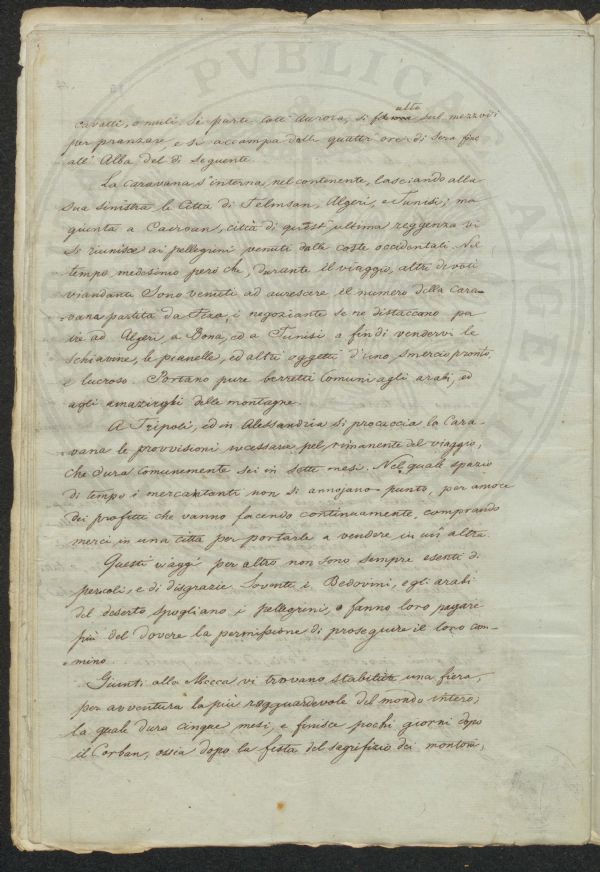 cavalli, o muli. Si parte coll' Aurora, si fa alto sul mezzodì
per pranzare, e si accampa dalle quattr' ore di sera fino
all' Alba del dì seguente.
La Caravana s' interna nel continente, lasciando alla
sua sinistra le Città di Telmsan, Algeri, e Tunisi; ma
giunta a Cairoan, città di quest' ultima reggenza vi
si riunisce ai pellegrini venuti dalle coste occidentali. Nel
tempo medesimo però che, durante il viaggio, altri divoti
viandanti sono venuti ad accrescere il numero della Cara-
vana partita da Fez, i negozianti se ne distaccono pa
re ad Algeri, a Bona, ed a Tunisi a fin di vendervi le
schiavine, le pianelle, ed altri oggetti d' uno smercio pronto
e lucroso. Portano pure berretti comuni agli arabi, ed
agli amazirghi delle montagne.
A Tripoli, ed in Alessandria si procaccia la Cara-
vana le provvisioni necessarie pel rimanente del viaggio,
che dura comunemente sei in sette mesi. Nel quale spazio
di tempo i mercantanti non si annojano punto, per amore
dei profitti che vanno facendo continuamente, comprando
merci in una città per portarle a vendere in un' altra.
Questi viaggi per altro non sono sempre esenti di
pericoli, e di disgrazie. Sovente i Bedovini, e gli arabi
del deserto spogliano i pellegrini, o fanno loro pagare
più del dovere la permissione di proseguire il loro cam-
mino.
Giunti alla Mecca vi trovano stabilita una fiera,
per avventura la più ragguardevole del mondo intero,
la quale dura cinque mesi, e finisce pochi giorni dopo
il Corban, ossia dopo la festa del sagrifizio dei montoni,
PVBLICAE